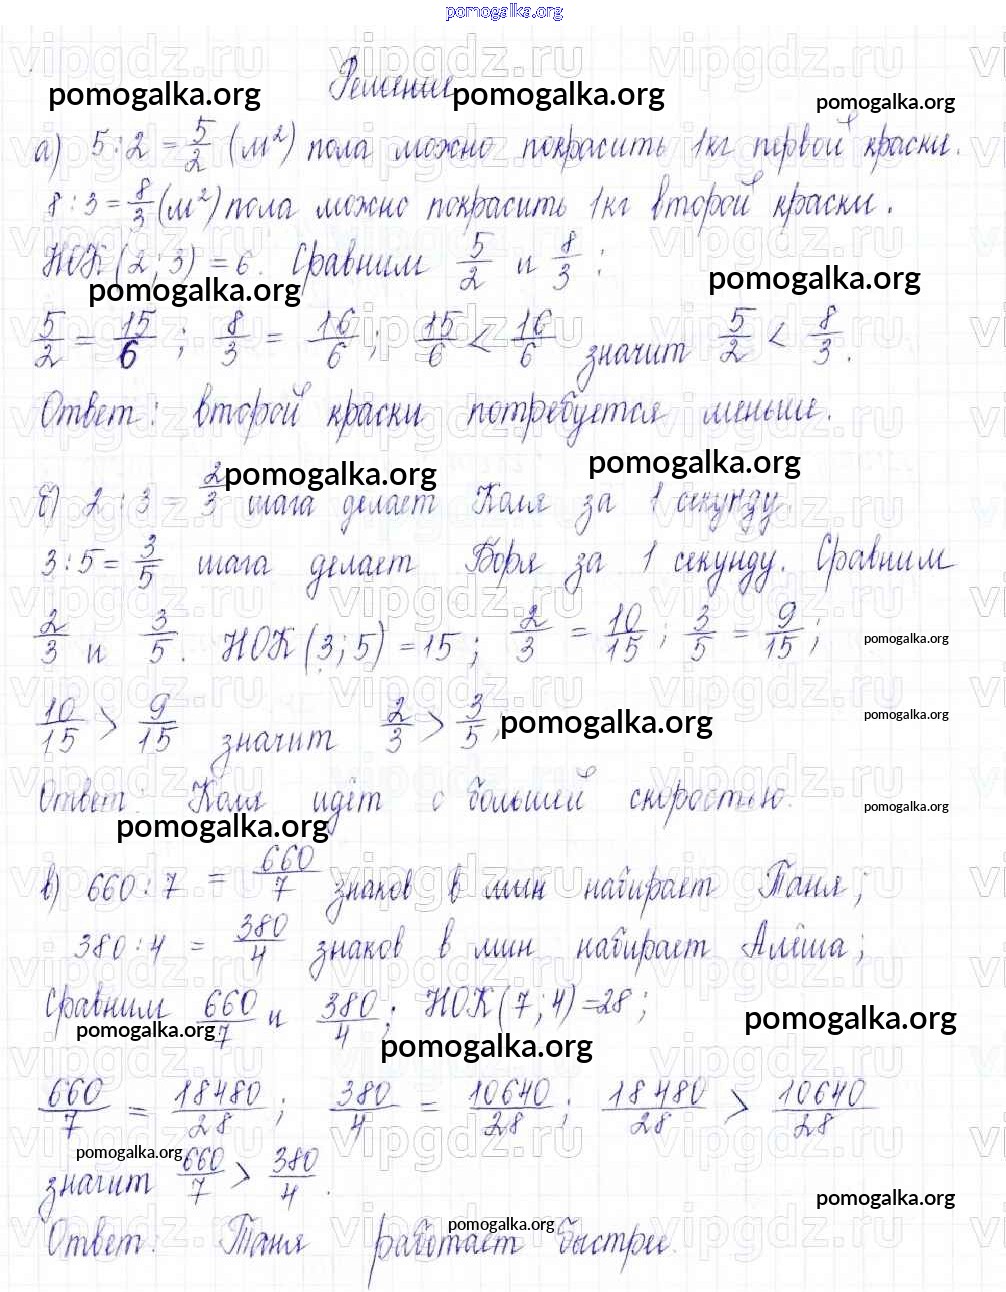 pomogalka.org
Решение
pomogalka.org pomogalka.org pomogalka.org
а) 5 : 2 = 5/2 (м²) пола можно покрасить 1кг первой краски.
8 : 3 = 8/3 (м²) пола можно покрасить 1кг второй краски.
НОК (2; 3) = 6. Сравним 5/2 и 8/3 :
pomogalka.org pomogalka.org
5/2 = 15/6 ; 8/3 = 16/6 ; 15/6 < 16/6 значит 5/2 < 8/3.
Ответ: второй краски потребуется меньше.
pomogalka.org pomogalka.org
б) 2 : 3 = 2/3 шага делает Коля за 1 секунду.
3 : 5 = 3/5 шага делает Боря за 1 секунду. Сравним
2/3 и 3/5. НОК (3; 5) = 15 ; 2/3 = 10/15 ; 3/5 = 9/15 ;
pomogalka.org
10/15 > 9/15 значит 2/3 > 3/5,
pomogalka.org pomogalka.org
Ответ: Коля идёт с большей скоростью.
pomogalka.org pomogalka.org
в) 660 : 7 = 660/7 знаков в мин набирает Таня;
380 : 4 = 380/4 знаков в мин набирает Алёша;
Сравним 660/7 и 380/4 ; НОК (7; 4) = 28 ;
pomogalka.org pomogalka.org pomogalka.org
660/7 = 18480/28 ; 380/4 = 10640/28 ; 18480/28 > 10640/28
pomogalka.org
значит 660/7 > 380/4.
pomogalka.org
Ответ: Таня работает быстрее.
pomogalka.org
vipgdz.ru